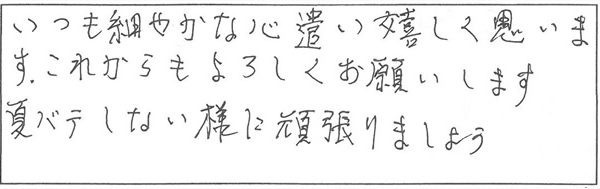 いつも細やかな心遣い嬉しく思いま
す.これからもよろしくお願いします
夏バテしない様に頑張りましょう